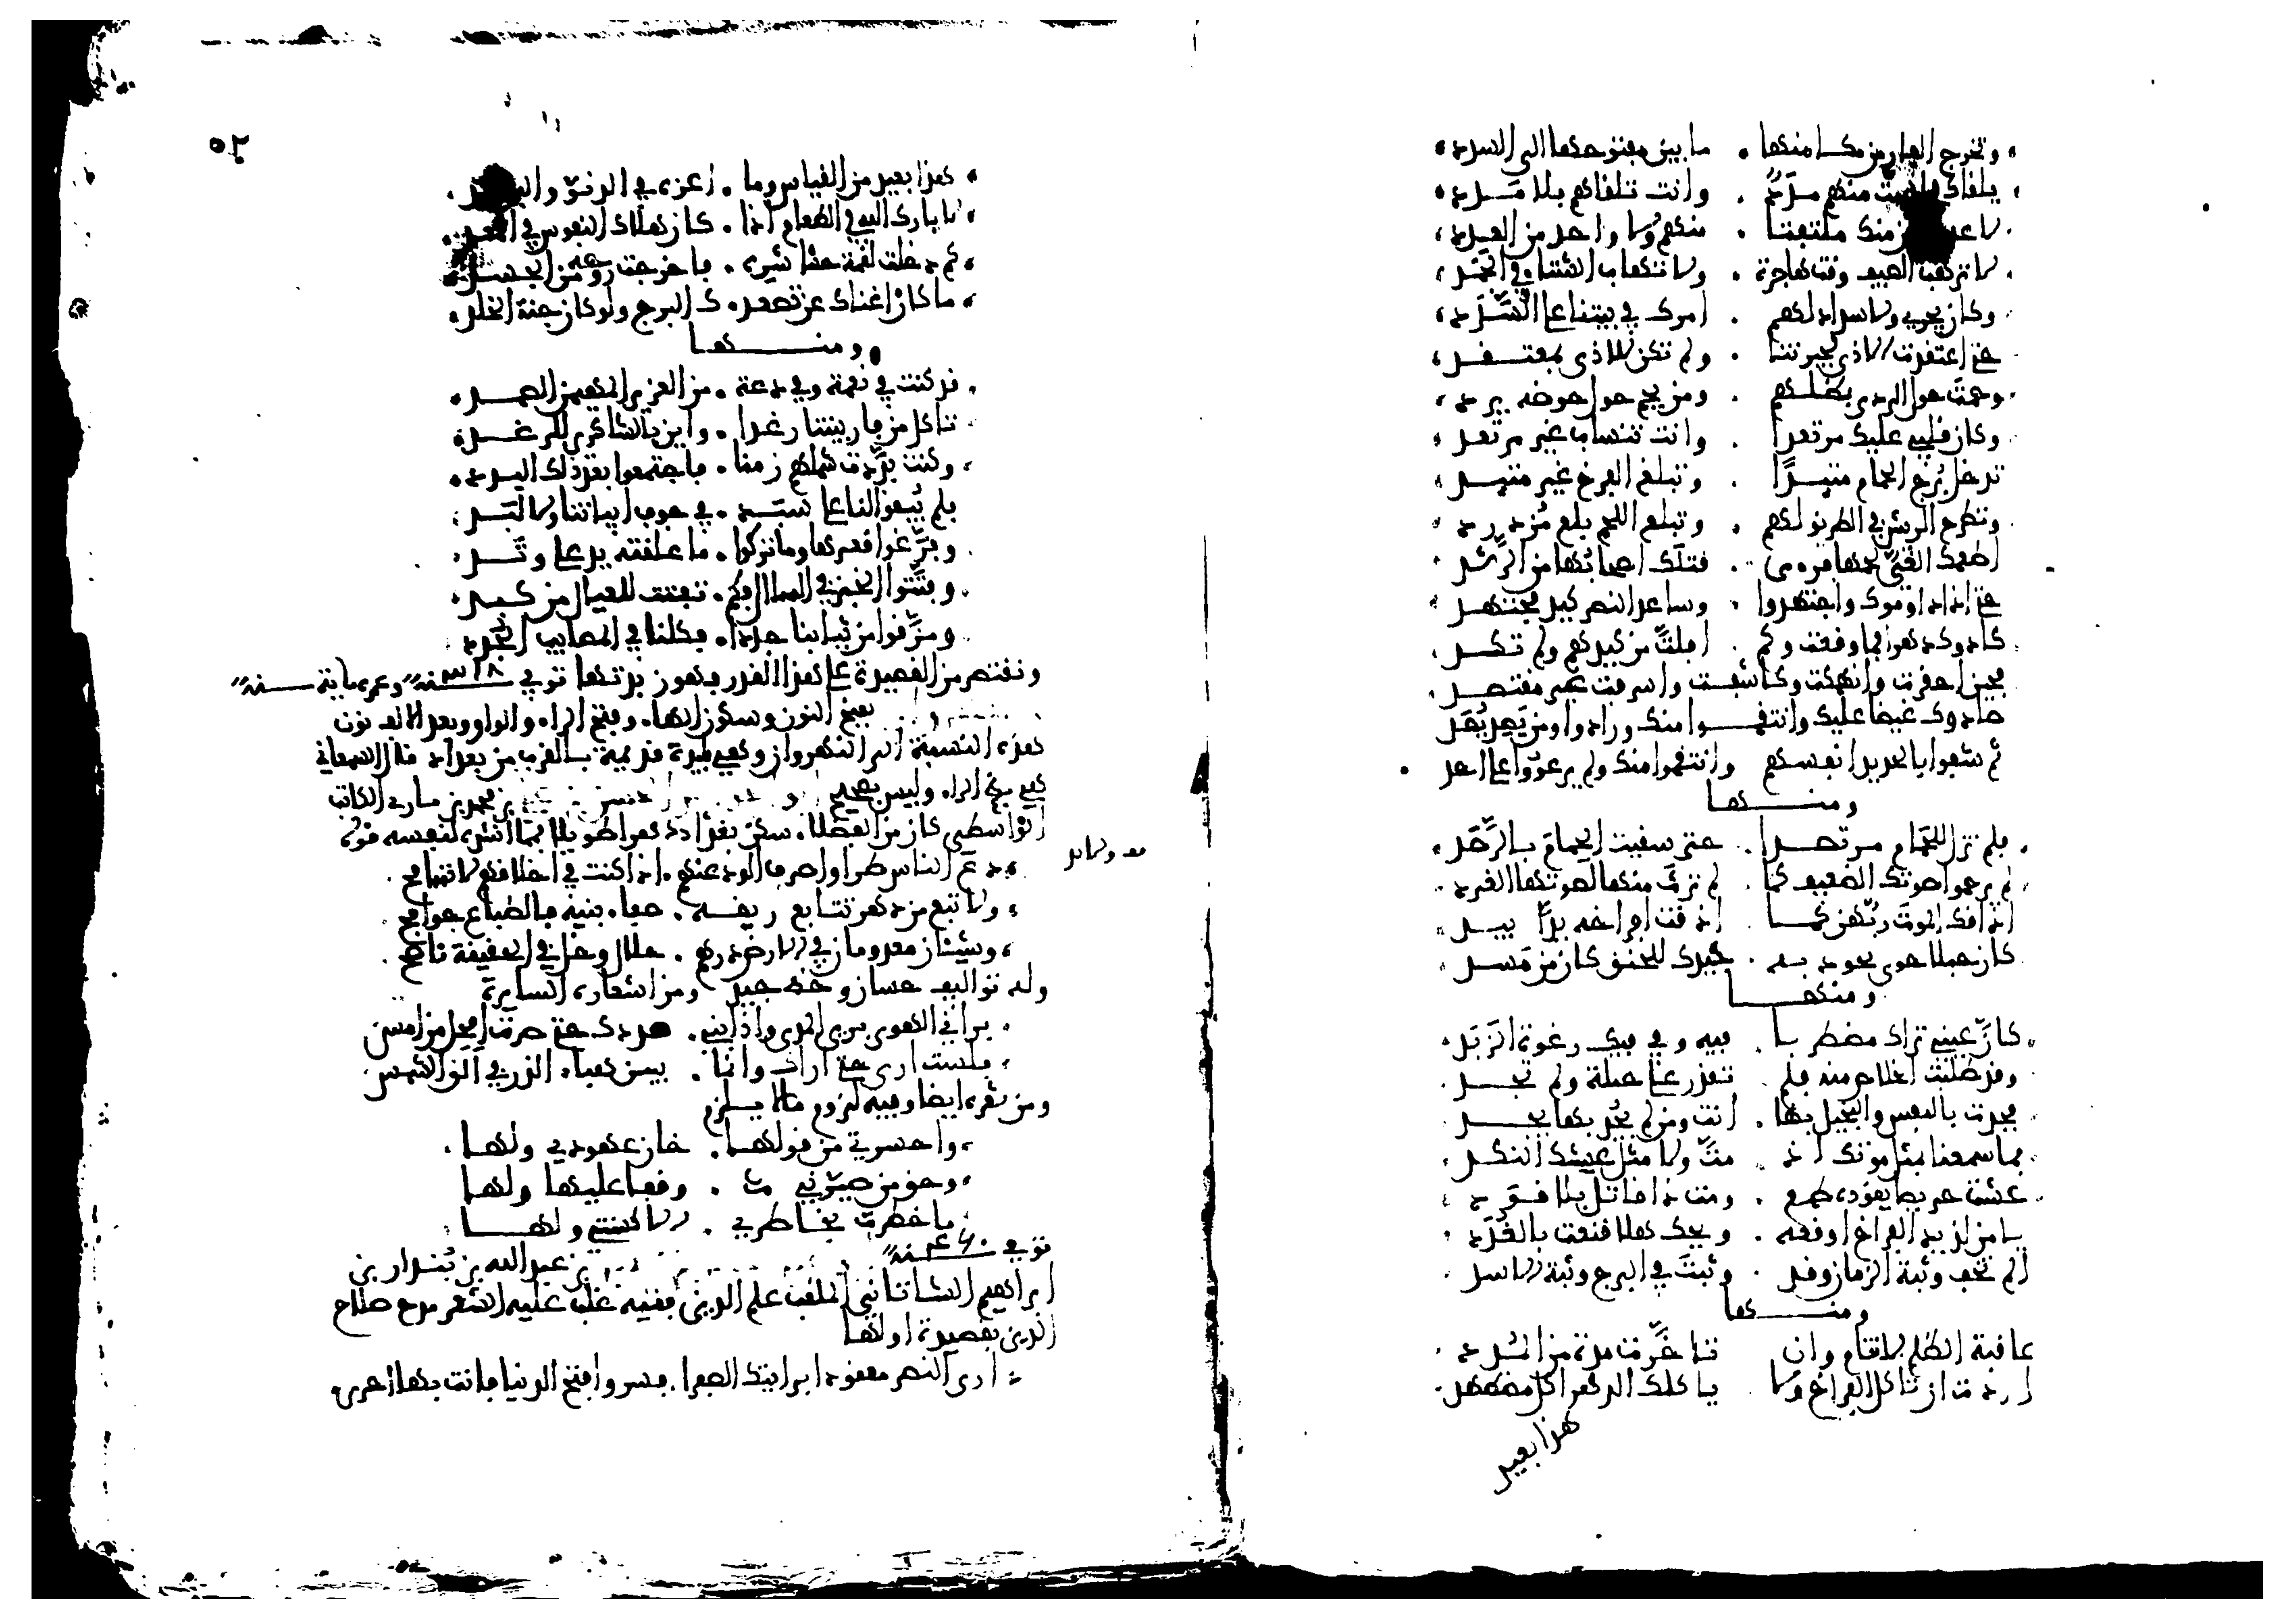 وتخرج الفار من مكامنها . ما بين مفتوحها الى السدد
يلقاك في البيت منهم مدد . وانت تلقاهم بلا مدد
لا عدد منك ملتفتا . منهم ولا واحد من العدد
لا ترهب الصيف وقت هاجرة . ولا تهاب الشتا في الجمد
وكان يجري ولا سداد لهم . امرك في بيتنا على السدد
حتى اعتقدت الاذى لجيرتنا . ولم تكن للاذى بمعتقد
وحمت حول الردى بظلمهم . ومن يحم حول حوضه يرد
وكان قلبي عليك مرتعدا . وانت تنساب غير مرتعد
تدخل برج الحمام متئدا . وتبلغ الفرخ غير متئد
وتطرح الريش في الطريق لهم . وتبلع اللحم بلع مزدرد
اطعمك الغي لحمها فرءى . قتلك اصحابها من الرشد
حتى اذا داوموك واجتهدوا . وساعد النصر كيد مجتهد
كادوك دهرا فما وقعت وكم . افلت من كيدهم ولم تكد
فحين اخفرت وانهمكت وكاشفت واسرفت غير مقتصد
صادوك غيظا عليك وانتقموا منك وزادوا ومن يصد يصد
ثم شفوا بالحديد انفسهم وانتقموا منك ولم يرعووا على احد
ومنها
فلم تزل للحمام مرتصدا . حتى سقيت الحمام بالرصد
لم يرحموا صوتك الضعيف كما . لم ترث منها لصوتها الغرد
اذاقك الموت ربهن كما . اذقت افراخه يدا بيد
كان حبلا حوى بجوده . جيدك للخنق كان من مسد
ومنها
كان عيني تراك مضطربا . فيه وفي فيك رغوة الزبد
وقد طلبت الخلاص منه فلم . تقدر على حيلة ولم تجد
فجدت بالنفس والبخيل بها . انت ومن لم يجد بها يجد
فما سمعنا بمثل موتك اذ . مت ولا مثل عيشك النكد
عشت حريصا يقوده طمع . ومت ذا قاتل بلا قود
يا من لذيذ الفراخ اوقعه . ويحك هلا قنعت بالغدد
الم تخف وثبة الزمان وقد . وثبت في البرج وثبة الاسد
ومنها
عاقبة الظلم لا تنام وان . تاخرت مدة من المدد
اردت ان تاكل الفراخ ولا . ياكلك الدهر اكل مضطهد
هذا بعيد
٥٢
هذا بعيد من القياس وما . اعزه في الدنو والبعد
لا بارك الله في الطعام اذا . كان هلاك النفوس في المعد
كم دخلت لقمة حشا شره . فاخرجت روحه من الجسد
ما كان اغناك عن تصعدك البرج ولو كان جنة الخلد
ومنها
قد كنت في نعمة وفي دعة . من العزيز المهيمن الصمد
تاكل من فار بيتنا رغدا . واين بالشاكرين للرغد
وكنت بددت شملهم زمنا . فاجتمعوا بعد ذلك البدد
فلم يبقوا لنا على سبد . في جوف ابياتنا ولا لبد
وفرغوا قعرها وما تركوا . ما علقته يد على وتد
وفتتوا الخبز في السلال فكم . تفتتت للعيال من كبد
ومزقوا من ثيابنا جددا . فكلنا في المصايب الجدد
ونقتصر من القصيدة على هذا القدر فهو زبدتها توفي سنة ٣١٨ وعمره ماية سنة
بفتح النون وسكون الهاء وفتح الراء والواو وبعد الالف نون
هذه النسبة الى النهروان وهي بليدة قديمة بالقرب من بغداد قال السمعاني
هي بضم الراء وليس بصحيح بن محمد بن الكاتب
الواسطي كان من الفضلا سكن بغداد دهرا طويلا مما انشده لنفسه قوله
دع الناس طرا واصرف الود عنهم . اذا كنت في اخلاقهم لا تسامح
ولا تبغ من دهر تتابع ريفه . صفاء بنيه فالطباع جوامح
وشيئان معدومان في الارض درهم . حلال وخل في الحقيقة ناصح
وله تواليف حسان وخط جيد ومن اشعاره السايرة
براني الهوى بري المدى واذابني . صدودك حتى صرت انحل من امس
فلست ارى حتى اراك وانما . يبين هباء الذر في الق الشمس
ومن شعره ايضا وفيه لزوم ما لا يلزم
واحسرتي من قولها . خان عهودي ولها
وحق من صيرني . وقفا عليها ولها
ما خطرت بخاطري . الا كستني ولها
توفي سنة ٤٦٠ بن عبد الله بن بندار بن
ابراهيم الشاتاني الملقب علم الدين فقيه غلب عليه الشعر مدح صلاح
الدين بقصيدة اولها
ارى النصر معقودا برايتك الصفرا . فسر وافتح الدنيا فانت بها احرى